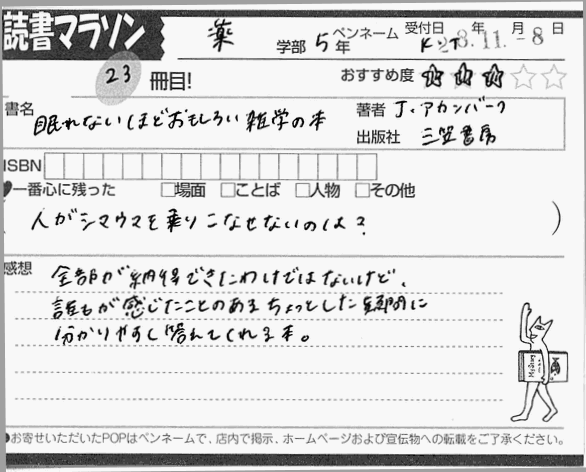 読書マラソン
薬 学部 5 年 ペンネーム 受付日 年 月 日
8.11.-8
23 冊目! おすすめ度 ★★★☆☆
書名 眠れないほどおもしろい雑学の本
著者 J.アカンバーク
出版社 三笠書房
ISBN
一番心に残った □場面 □ことば □人物 □その他
人がシマウマを乗りこなせないのは? )
感想 全部が納得できたわけではないけど、
誰もが感じたことのあるちょっとした疑問に
分かりやすく答えてくれる本。
●お寄せいただいたPOPはペンネームで、店内で掲示、ホームページおよび宣伝物への転載をご了承ください。